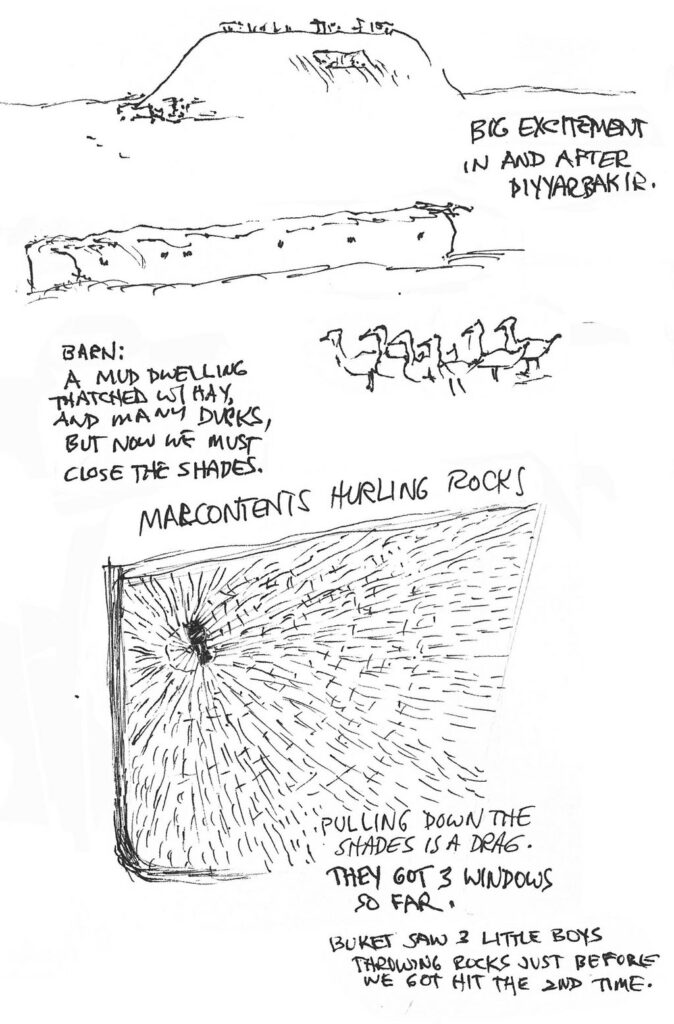 BIG EXCITEMENT
IN AND AFTER
DIYYARBAKIR.
BARN:
A MUD DWELLING
THATCHED W/ HAY,
AND MANY DUCKS,
BUT NOW WE MUST
CLOSE THE SHADES.
MALCONTENTS HURLING ROCKS
PULLING DOWN THE
SHADES IS A DRAG.
THEY GOT 3 WINDOWS
SO FAR.
BUKET SAW 3 LITTLE BOYS
THROWING ROCKS JUST BEFORE
WE GOT HIT THE 2ND TIME.